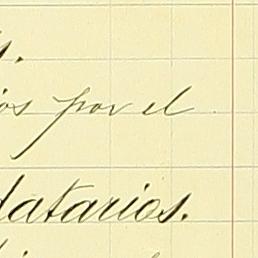 s.
os por el
datarios.